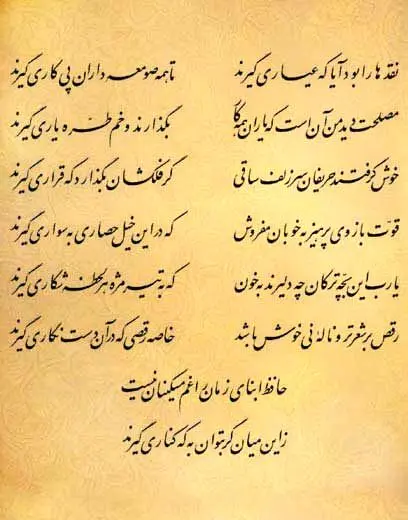 نقدها را بود آیا که عیاری گیرند تا همه صومعه داران پی کاری گیرند
مصلحت دید من آن است که یاران همه کار بگذارند و خم طره یاری گیرند
خوش گرفتند حریفان سر زلف ساقی گر فلکشان بگذارد که قراری گیرند
قوت بازوی پرهیز به خوبان مفروش که در این خیل حصاری به سواری گیرند
یارب این بچه ترکان چه دلیرند به خون که به تیر مژه هر لحظه شکاری گیرند
رقص بر شعر تر و ناله نی خوش باشد خاصه رقصی که در آن دست نگاری گیرند
حافظ ابنای زمان را غم مسکینان نیست
زین میان گر بتوان به که کناری گیرند